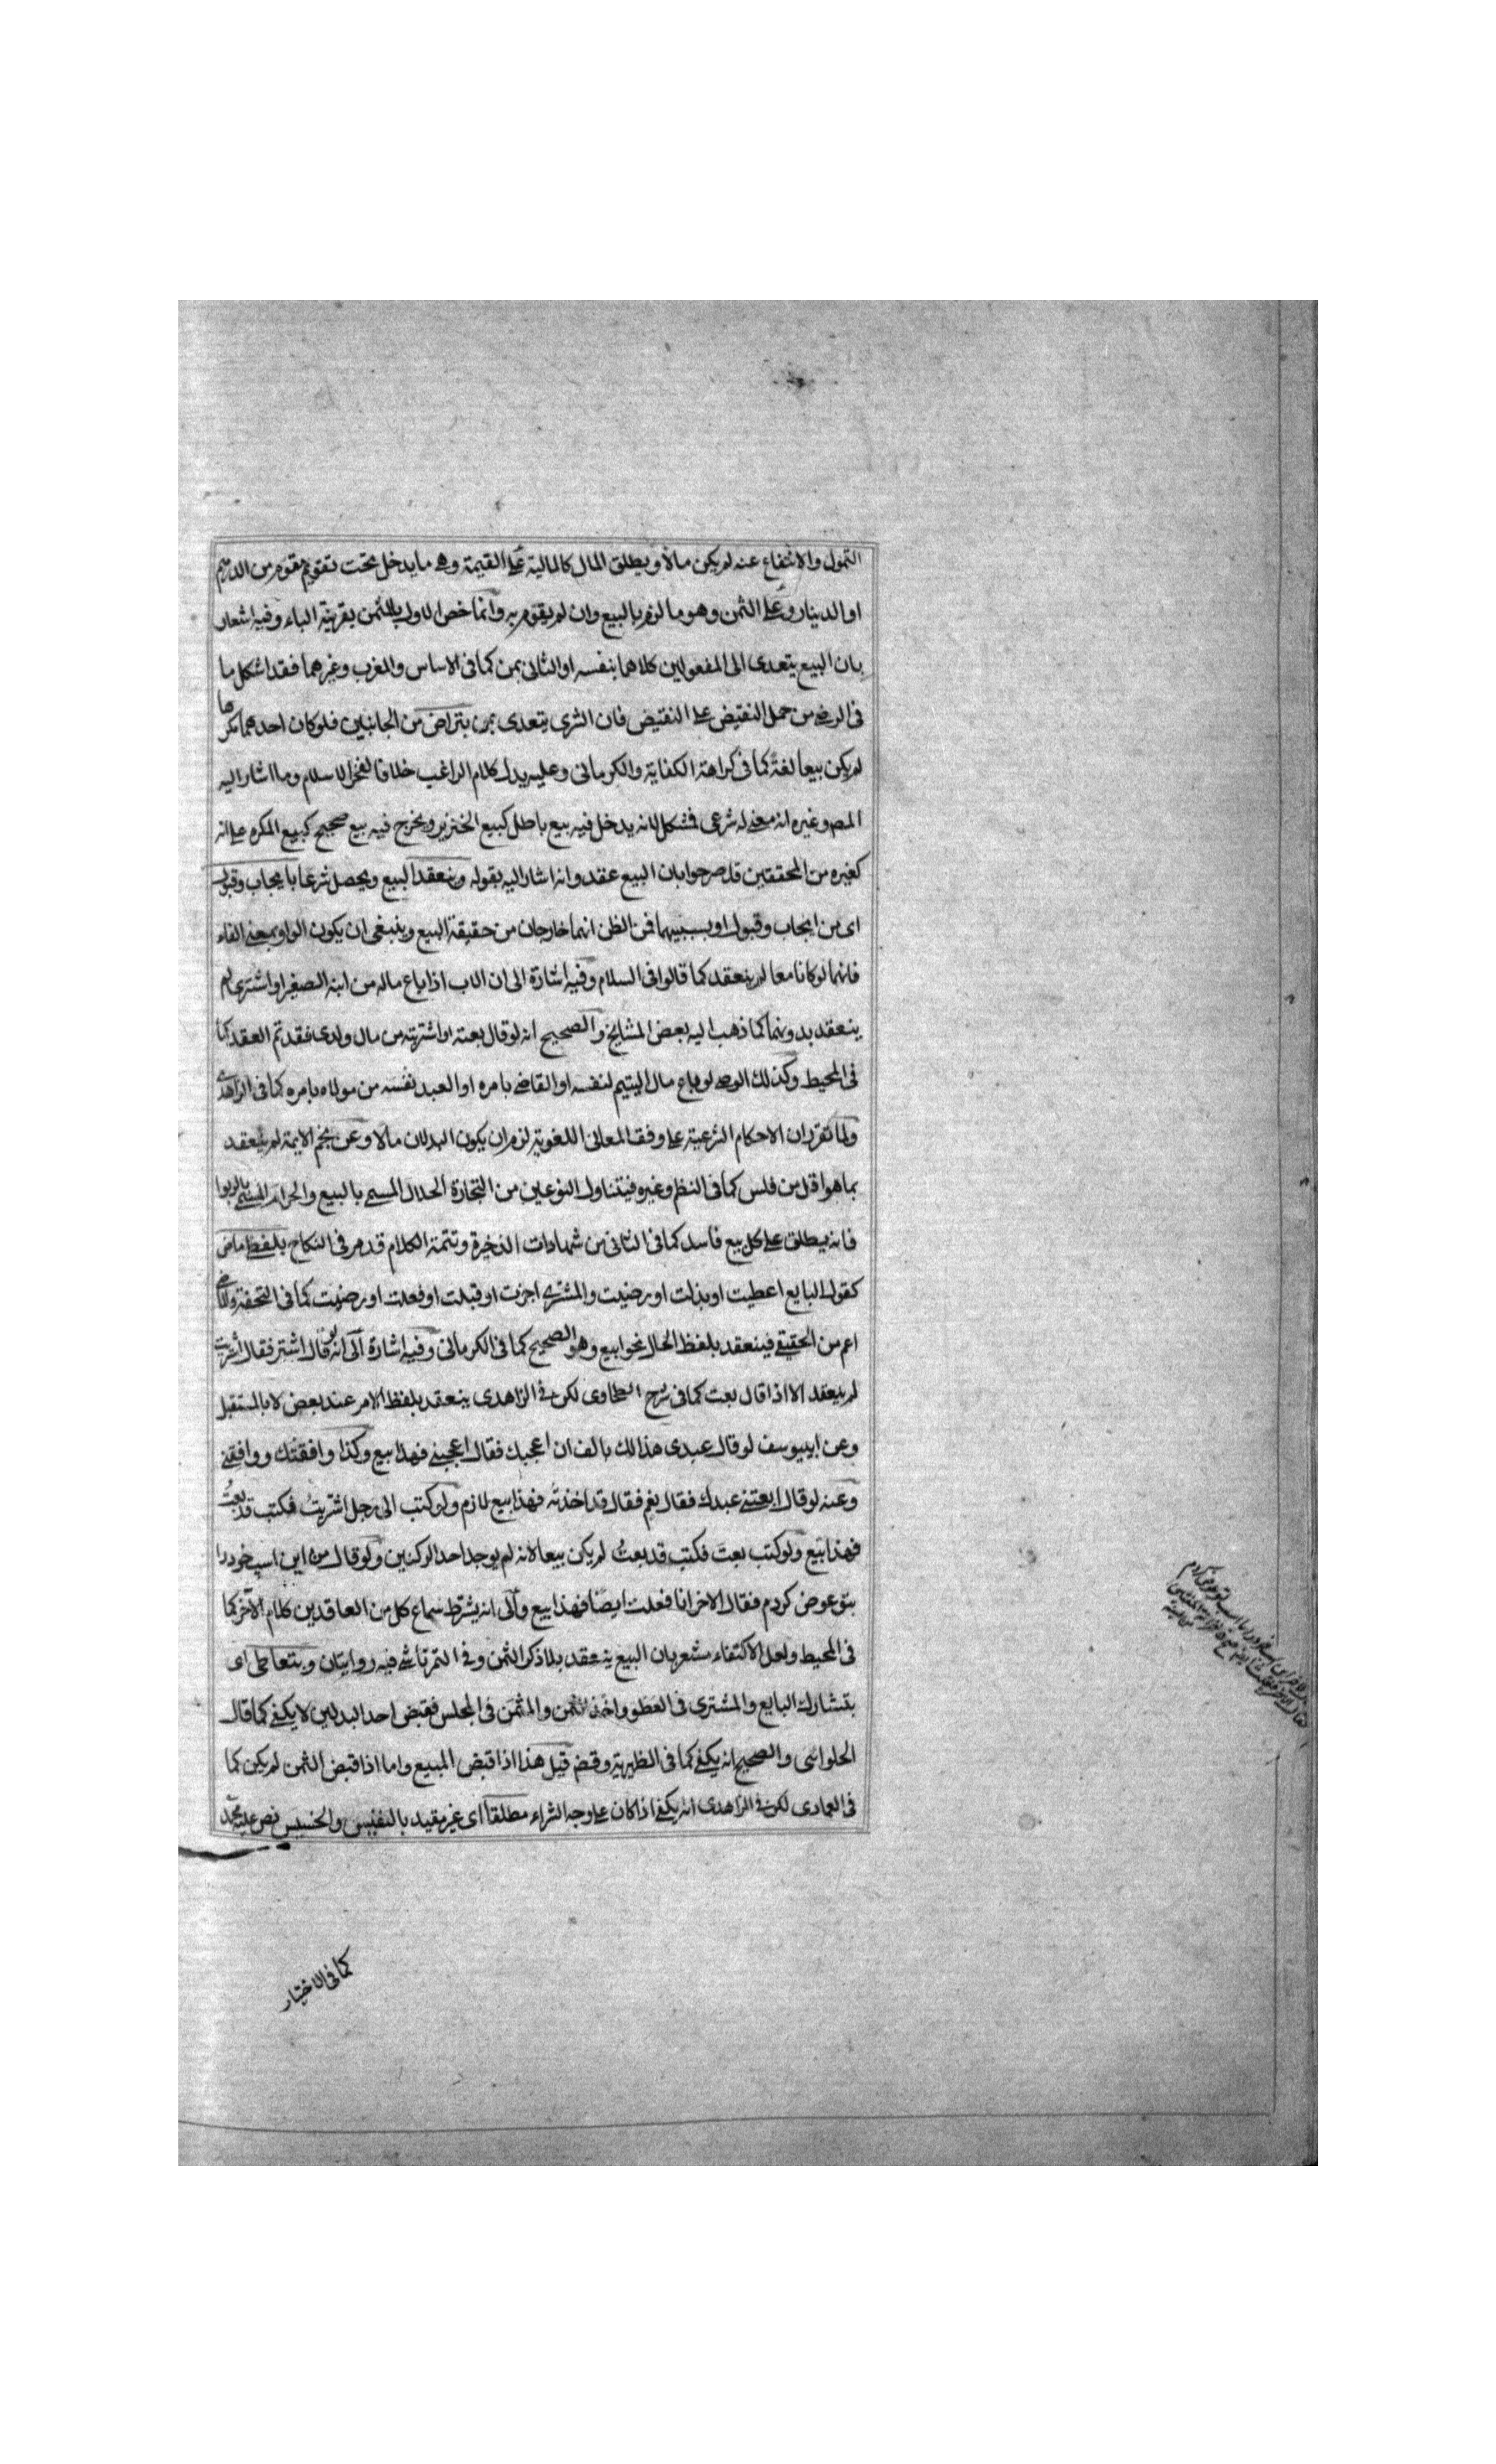 التمول والانتفاع عنه لم يكن مالا ويطلق المال كالمالية على القيمة وهى ما يدخل تحت تقويم مقوم من الدرهم
او الدينار وعلى الثمن وهو ما لزم بالبيع وان لم يقوم به وانما خص الاول بالثمن بقرينة الباء وفيه اشعار
بان البيع يتعدى الى المفعولين كلاهما بنفسه او الثانى بمن كما فى الاساس والمغرب وغيرهما فقد اشكل ما
فى الرضى من حمل النقيض على النقيض فان الشرى يتعدى بمن بتراض من الجانبين فلو كان احدهما مكرها
لم يكن بيعا لغة كما فى كراهة الكفاية والكرمانى وعليه يدل كلام الراغب خلافا لفخر الاسلام وما اشار اليه
المص وغيره انه معنى له شرعى فمشكل لانه يدخل فيه بيع باطل كبيع الخنزير ويخرج فيه بيع صحيح كبيع المكره على انه
كغيره من المحققين قد صرحوا بان البيع عقد وانه اشار اليه بقوله وينعقد البيع ويحصل شرعا بايجاب وقبول
اى من ايجاب وقبول او بسببيهما فمن الظن انهما خارجان من حقيقة البيع وينبغى ان يكون الواو بمعنى الفاء
فانهما لو كانا معا لم ينعقد كما قالوا فى السلام وفيه اشارة الى ان الاب اذا باع ماله من ابنه الصغير او اشترى لم
ينعقد بدونهما كما ذهب اليه بعض المشايخ والصحيح انه لو قال بعته او اشتريته من مال ولدى فقد تم العقد كما
فى المحيط وكذلك الوصى لو باع مال اليتيم لنفسه او القاضى بامره او العبد نفسه من مولاه بامره كما فى الزاهدى
ولما تقرر ان الاحكام الشرعية على وفق المعانى اللغوية لزم ان يكون البدلان مالا وعن نجم الايمة لم ينعقد
بما هو اقل من فلس كما فى النظم وغيره فيتناول النوعين من التجارة الحلال المسمى بالبيع والحرام المسمى بالربوا
فانه يطلق على كل بيع فاسد كما فى الثانى من شهادات الذخيرة وتتمة الكلام قد مر فى النكاح بلفظ ماض
كقول البايع اعطيت او بذلت او رضيت والمشترى اجزت او قبلت او فعلت او رضيت كما فى التحفة والماضى
اعم من الحقيقى فينعقد بلفظ الحال نحو ابيع وهو الصحيح كما فى الكرمانى وفيه اشارة الى انه لو قال اشتر فقال اشتريت
لم ينعقد الا اذا قال بعت كما فى شرح الطحاوى لكن فى الزاهدى ينعقد بلفظ الامر عند بعض لا بالمستقبل
وعن ابى يوسف لو قال عبدى هذا لك بالف ان اعجبك فقال اعجبنى فهذا بيع وكذا وافقتك ووافقنى
وعنه لو قال ابعتنى عبدك فقال نعم فقال قد اخذته فهذا بيع لازم ولو كتب الى رجل اشتريت فكتب قد بعت
فهذا بيع ولو كتب بعت فكتب قد بعت لم يكن بيعا لانه لم يوجد احد الركنين ولو قال من اين اسپ خود را
بتو عوض كردم فقال الاخر انا فعلت ايضا فهذا بيع والى انه يشرط سماع كل من العاقدين كلام الآخر كما
فى المحيط ولعل الاكتفاء مشعر بان البيع ينعقد بلا ذكر الثمن وفى التمرتاشى فيه روايتان وبتعاطى اى
بتشارك البايع والمشترى فى العطو واخذ الثمن والمثمن فى المجلس فقبض احد البدلين لا يكفى كما قال
الحلوائى والصحيح انه يكفى كما فى الظهيرية وقضـ قيل هذا اذا قبض المبيع واما اذا قبض الثمن لم يكن كما
فى العمادى لكن فى الزاهدى انه يكفى اذا كان على وجه الشراء مطلقا اى غير مقيد بالنفيس والخسيس نص عليه محمد
كما فى الاختيار